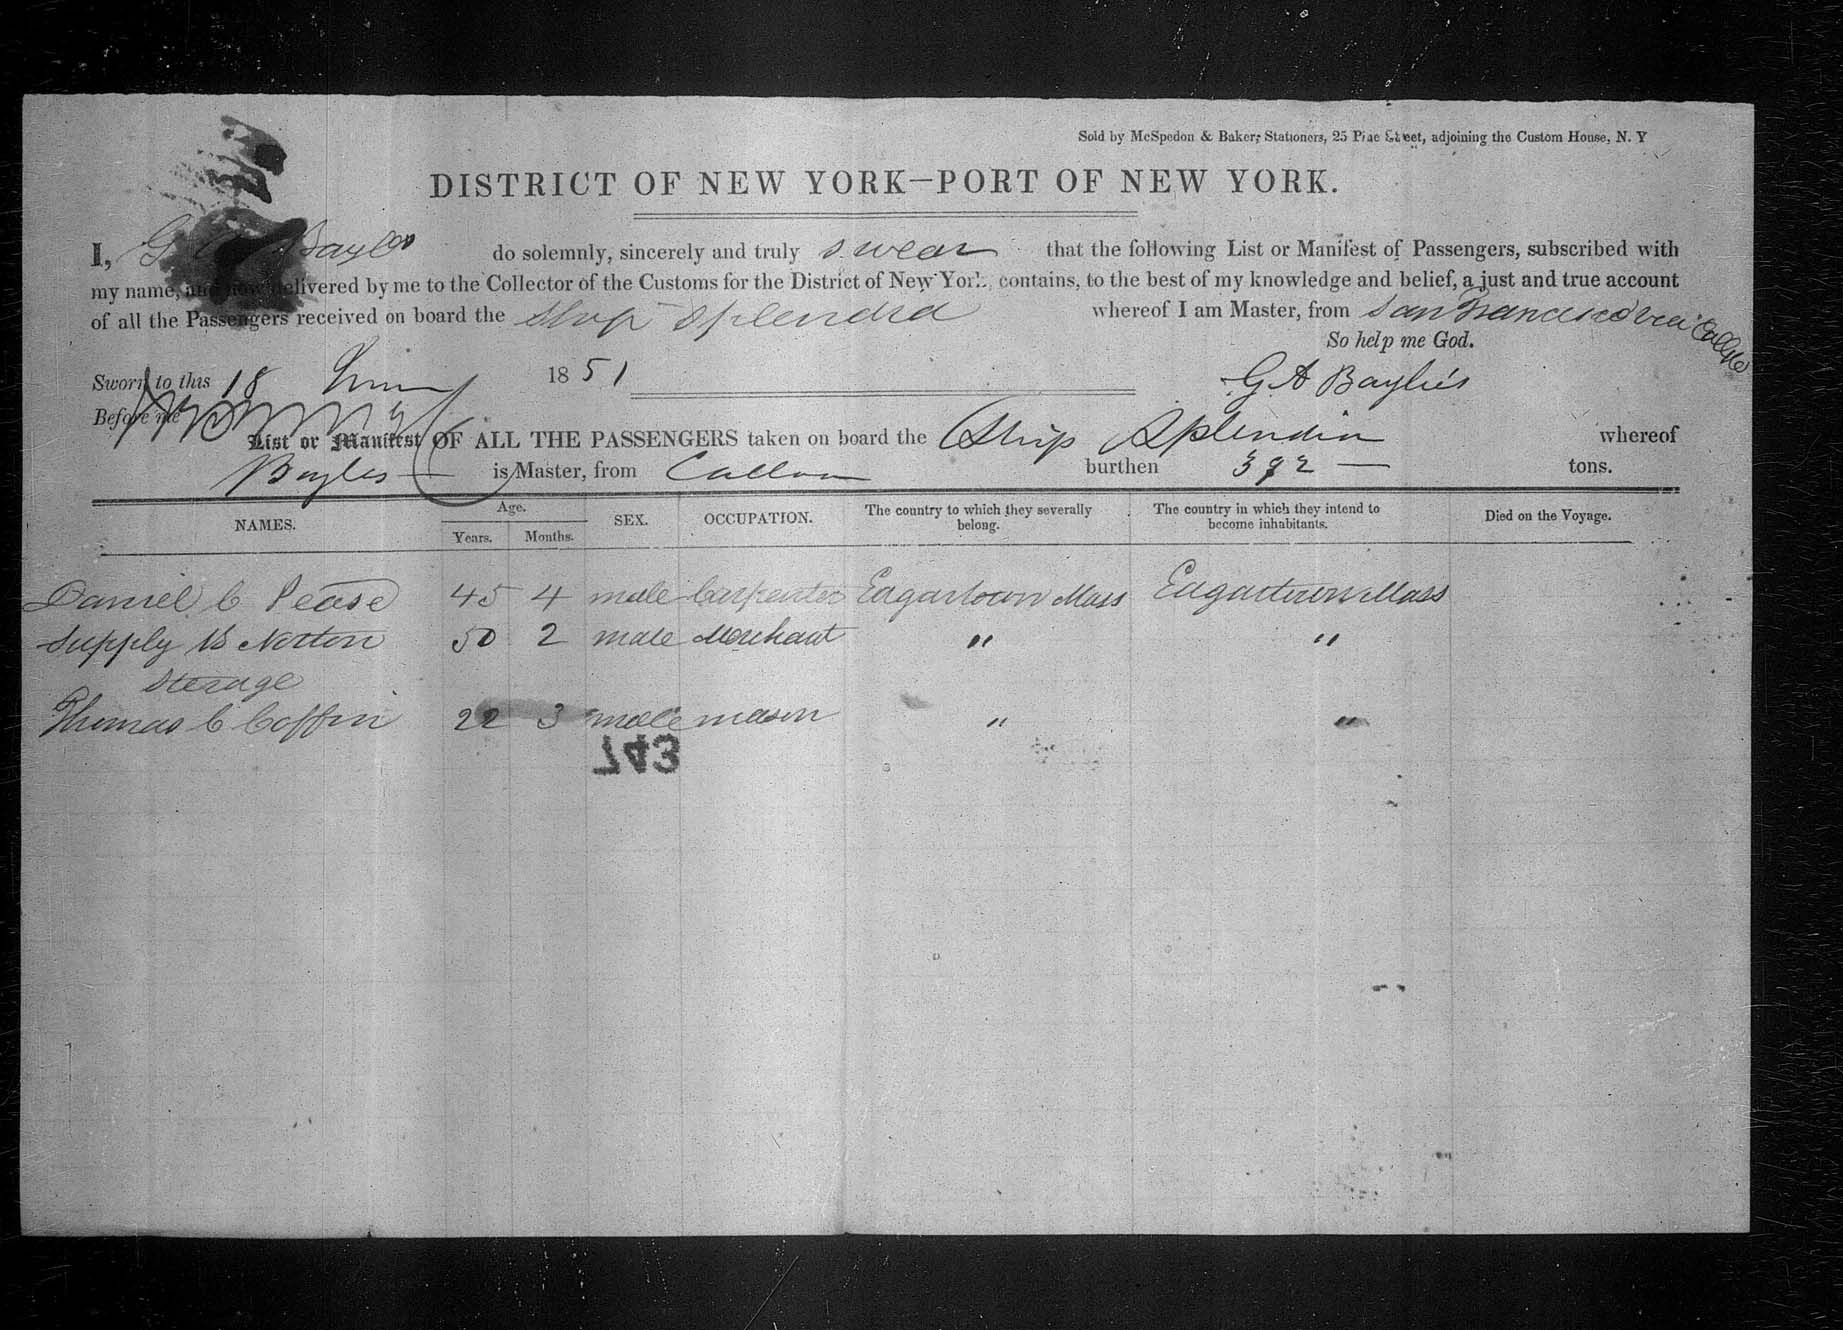 Sold by McSpedon & Baker, Stationers, 25 Pine Street, adjoining the Custom House, N. Y
DISTRICT OF NEW YORK—PORT OF NEW YORK.
I, G A Baylies do solemnly, sincerely and truly swear that the following List or Manifest of Passengers, subscribed with
my name, and now delivered by me to the Collector of the Customs for the District of New York, contains, to the best of my knowledge and belief, a just and true account
of all the Passengers received on board the Ship Splendid whereof I am Master, from San Francisco via Callao
So help me God.
Sworn to this 18 1851 G A Baylies
Before me
List or Manifest OF ALL THE PASSENGERS taken on board the Ship Splendid whereof
Bayles is Master, from Callao burthen 392 tons.
NAMES. Age. Years. Months. SEX. OCCUPATION. The country to which they severally belong. The country in which they intend to become inhabitants. Died on the Voyage.
Daniel C Pease 45 4 male Carpenter Edgartown Mass Edgartown Mass
Supply B Norton 50 2 male Merchant " "
Sterage
Thomas C Coffin 22 3 male mason " "
743